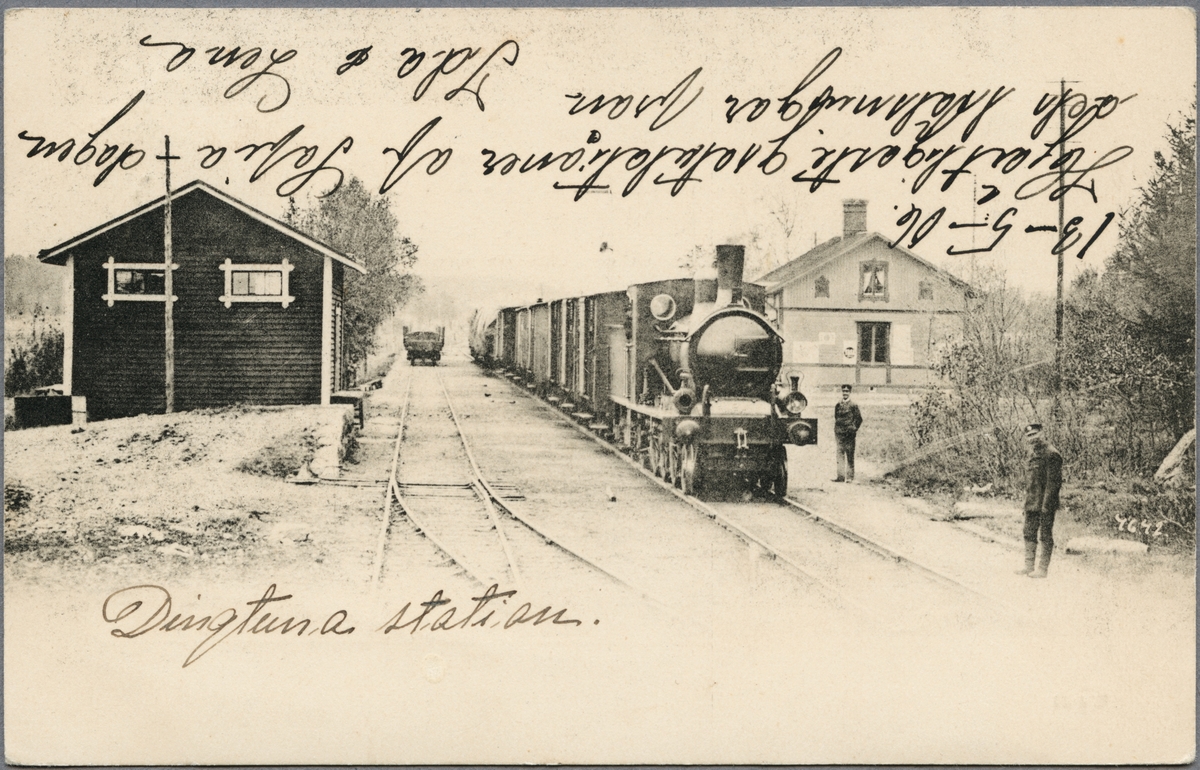 13-5-06.
Hjärtligaste gratulationer af Sofia-dagen
och hälsningar från
Ida & Lena
Dingtuna station.
4642